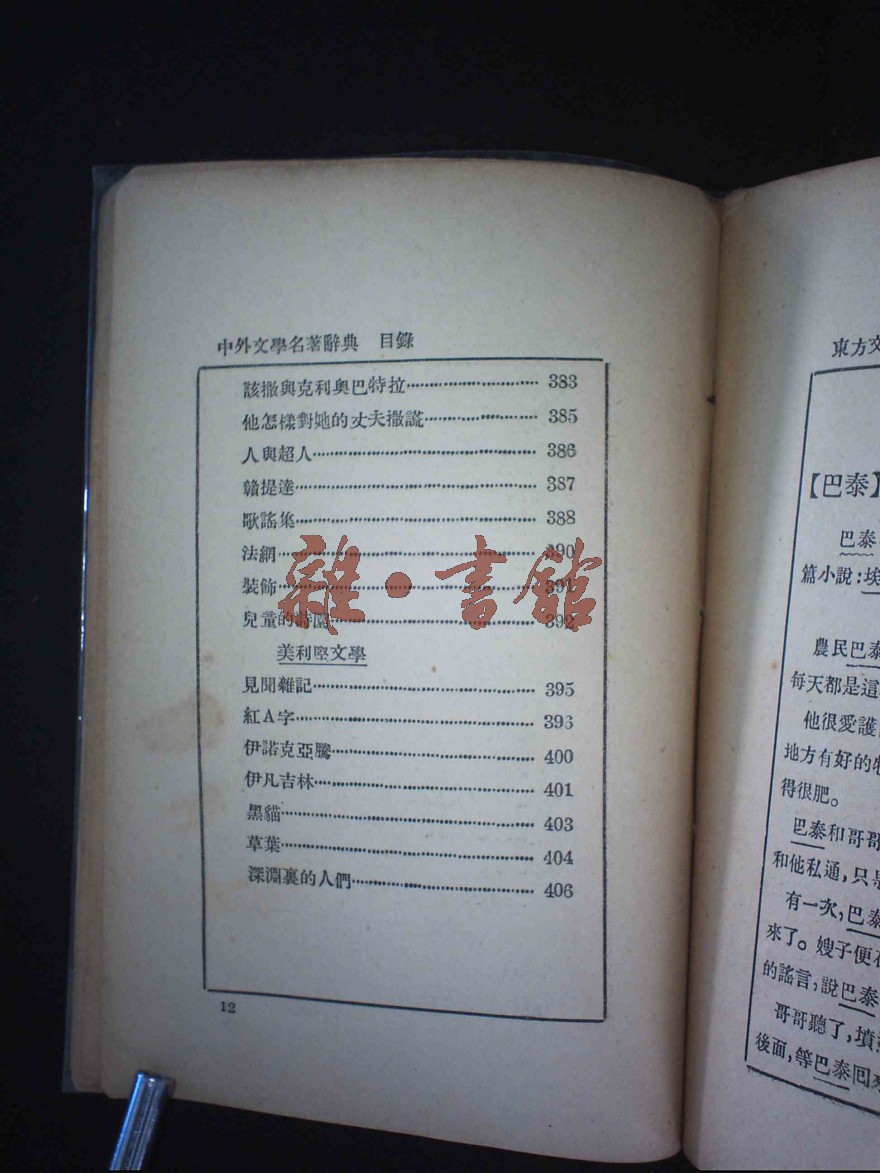 中外文學名著辭典 目錄
該撒與克利奧巴特拉 383
他怎樣對她的丈夫撒謊 385
人與超人 386
贛提達 387
歌謠集 388
法網 390
裝飾 391
兒童的詩園 392
美利堅文學
見聞雜記 395
紅A字 396
伊諾克亞騰 400
伊凡吉林 401
黑貓 403
草葉 404
深淵裏的人們 406
12
雜·書館
東方文
【巴泰】
巴泰
篇小說：埃
農民巴泰
每天都是這
他很愛護
地方有好的牧
得很肥。
巴泰和哥哥
和他私通，只是
有一次，巴泰
來了。嫂子便
的謠言，說巴泰
哥哥聽了，憤
後面，等巴泰回來